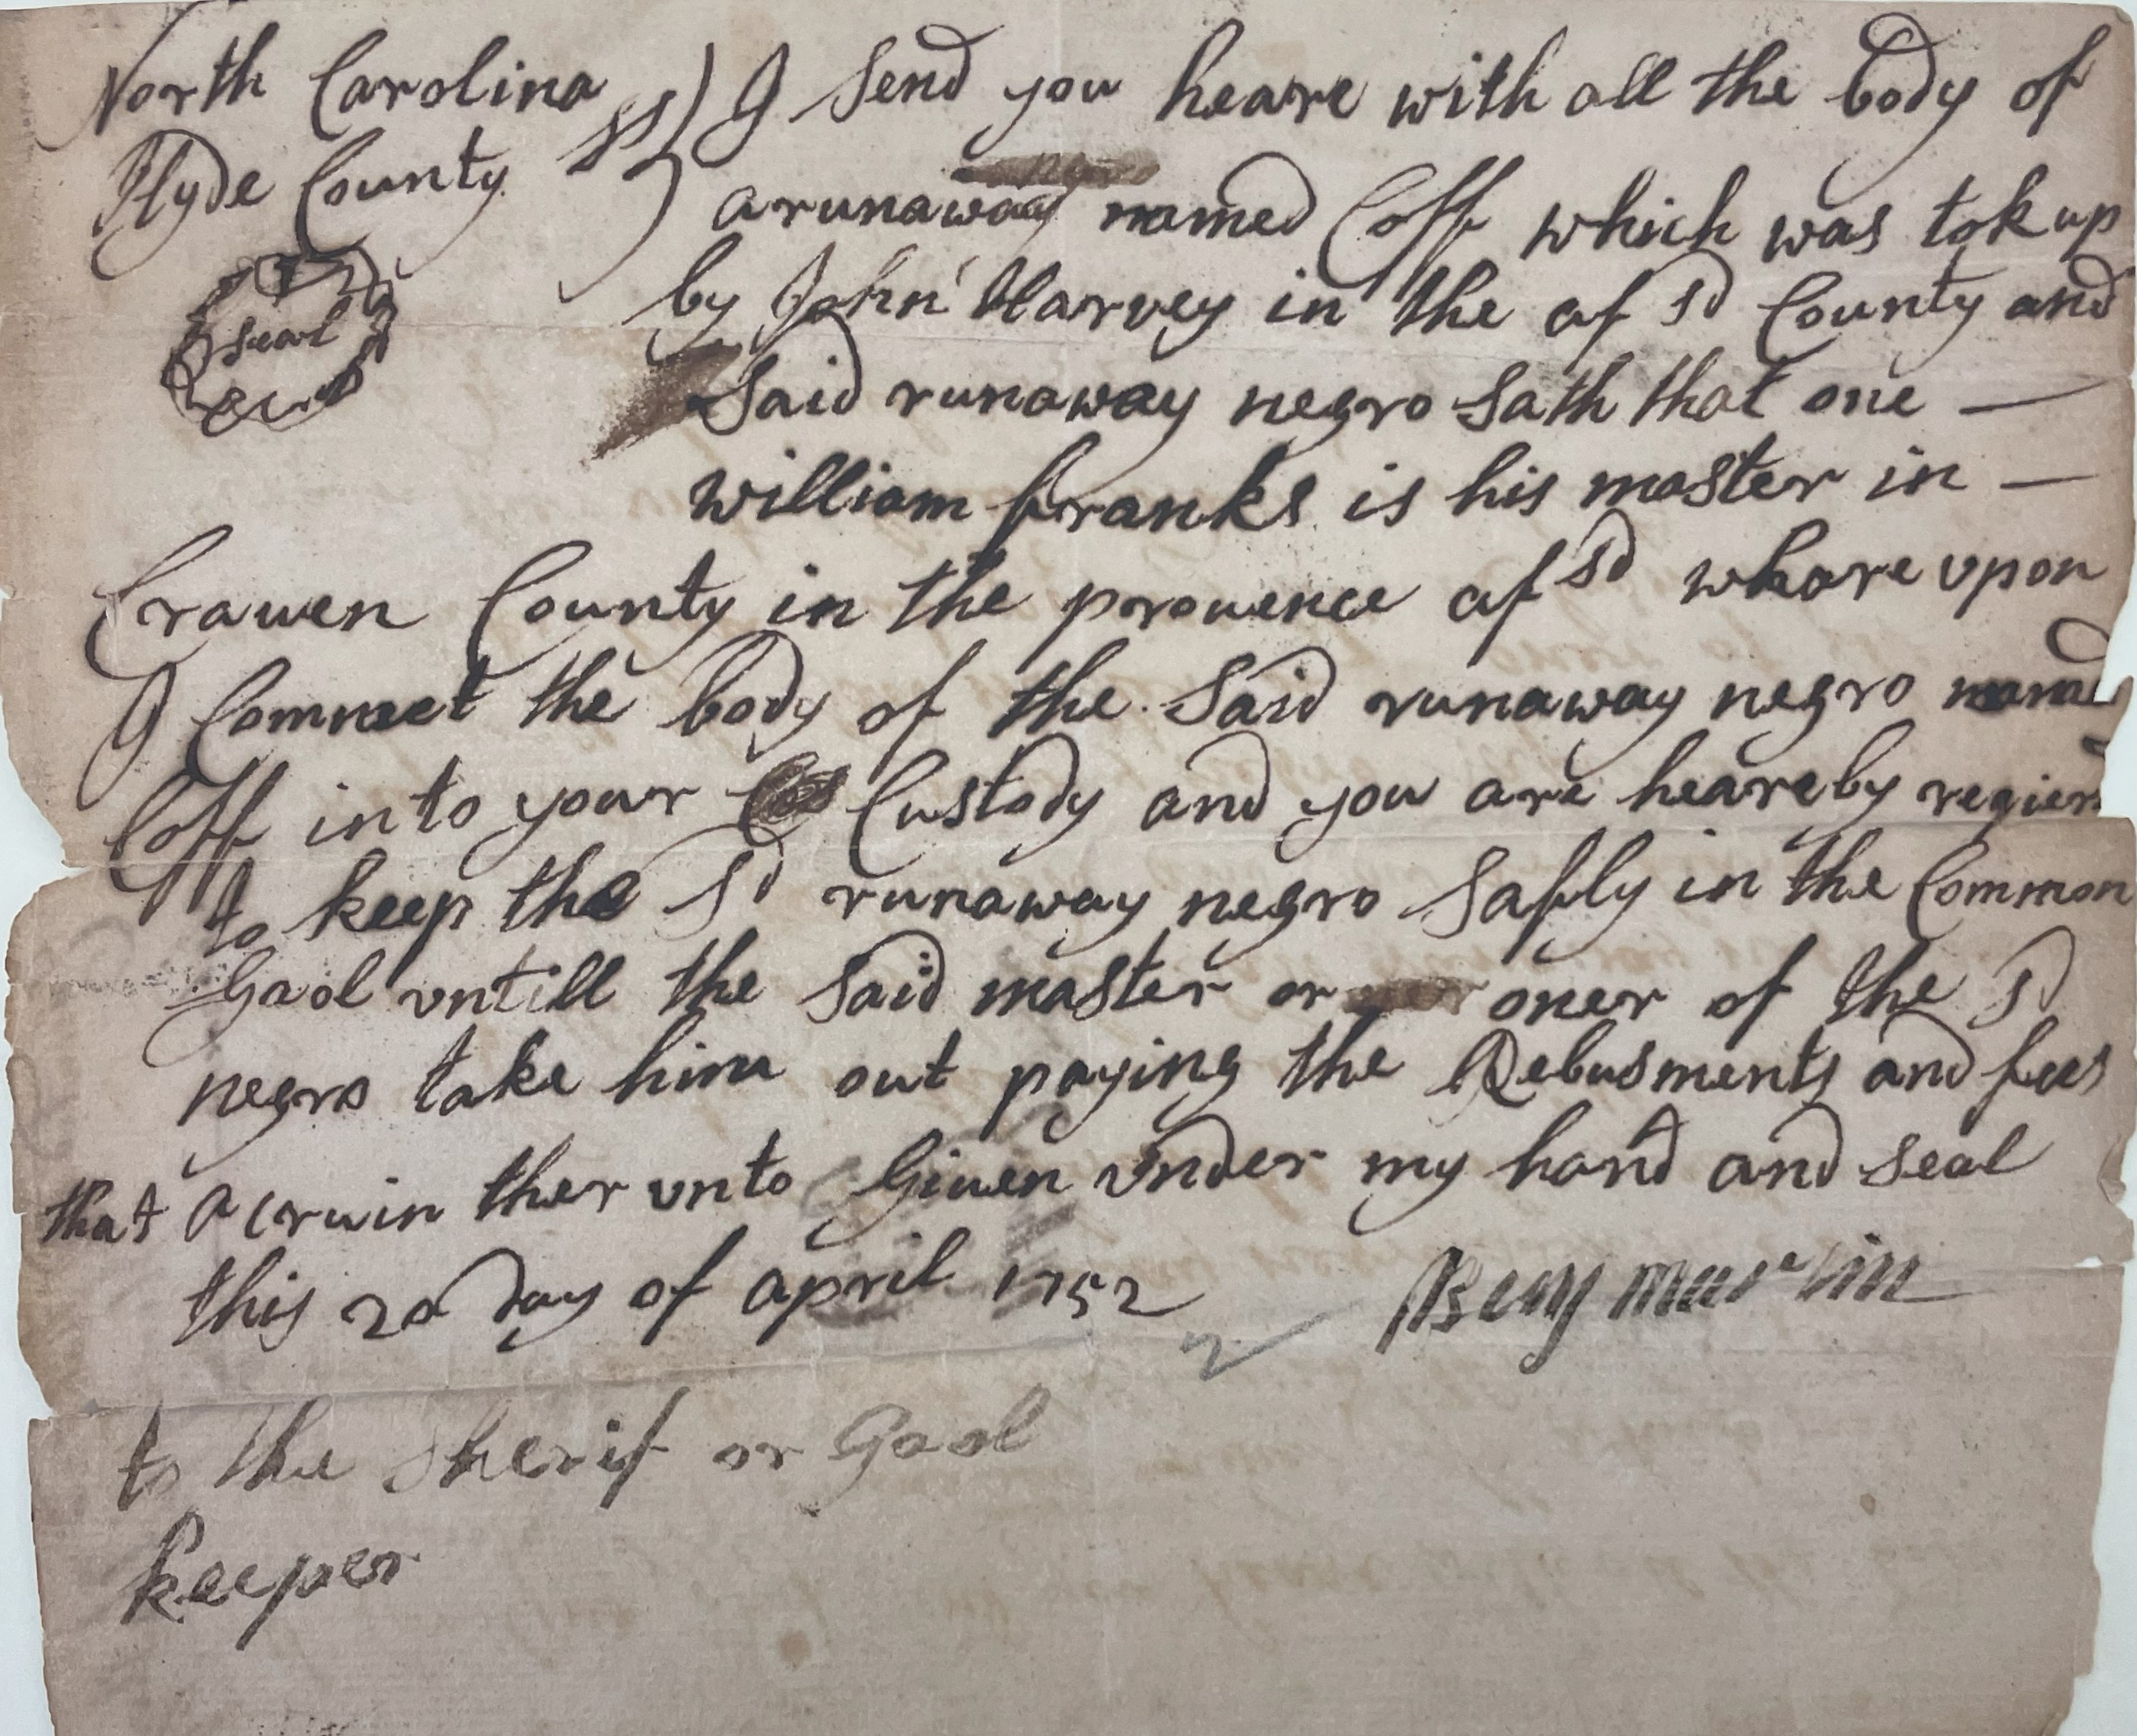 North Carolina ss) I Send you heare with all the body of
Hyde County arunaway named Coff which was tok up
seal
by John Harvey in the af sd County and
Said runaway negro Sath that one —
william franks is his master in —
Crauen County in the prouence af sd whare vpon
I Commeet the body of the Said runaway negro named
Coff into your Custody and you are heareby regier
to keep the sd runaway negro Safly in the Common
Gaol vntill the Said master or oner of the sd
negro take him out paying the Rebusments and fees
that Acruin ther vnto Giuen vnder my hand and Seal
this 20 day of april 1752 Benj martin
to the Sherif or Gaol
keeper